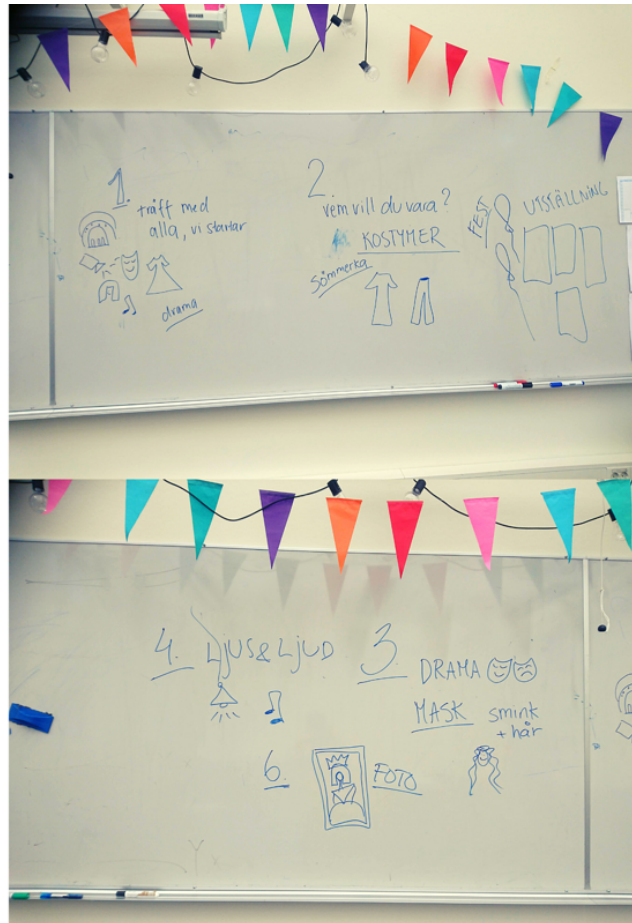 1.
träff med
alla, vi startar
drama
2.
vem vill du vara?
KOSTYMER
Sömmerka
FEST
UTSTÄLLNING
4. LJUS & LJUD
3.
DRAMA
MASK smink
+ hår
6. FOTO